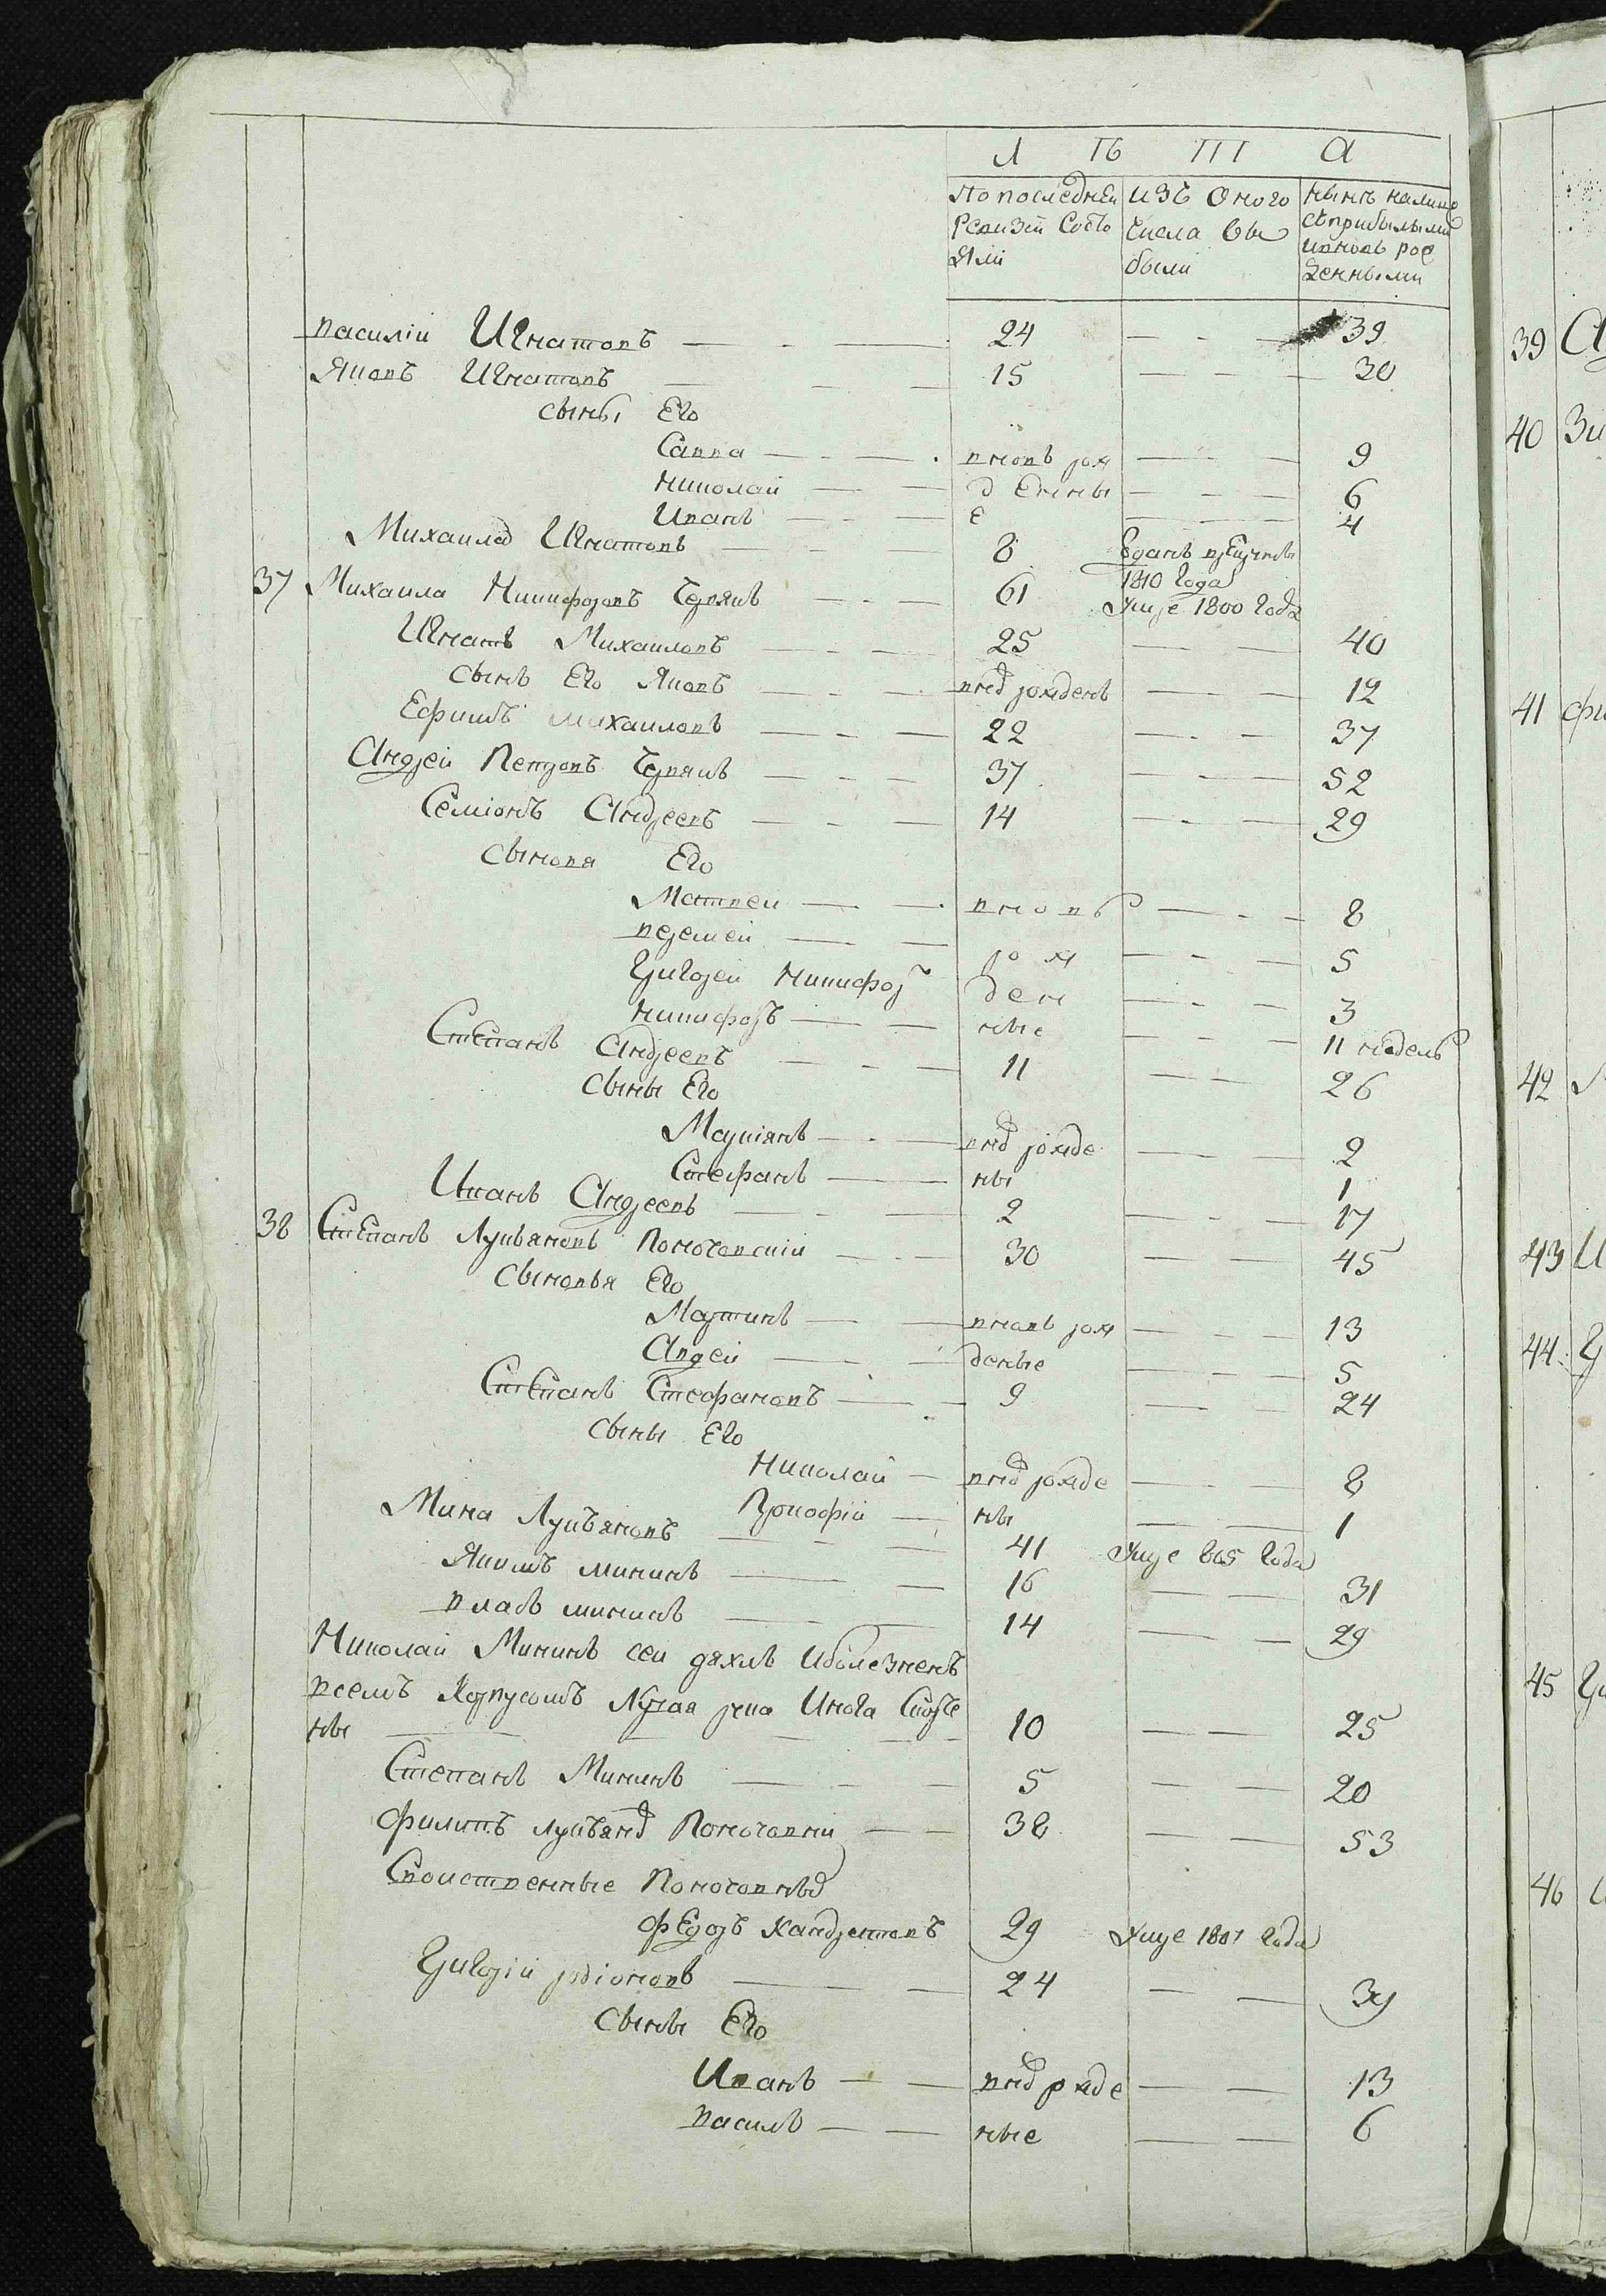 Л Ѣ Т А
По последней ревизіи Состояли
изъ Оного Числа выбыли
нынѣ налицо съприбылыми ивновь рожденными
василій Игнатовъ — 24 — 39
Яковъ Игнатовъ — 15 — 30
сыны Его
Савва — вновь рож — 9
Николай — денны — 6
Иванъ — е — 4
Михаило Игнатовъ — 8 Зданъ врекруты 1810 Года
37 Михаила Никифоровъ Червякъ — 61 Умре 1800 Года
Игнатъ Михаиловъ — 25 — 40
сынъ Его Яковъ — вно рожденъ — 12
Ефимъ михаиловъ — 22 — 37
Андрей Петровъ Червякъ — 37 — 52
Семіонъ Андреевъ — 14 — 29
сыновя Его
Матвеи — вновь — 8
веремей — рож — 5
Григорей Никифор ден — 3
Никифоръ — ные — 11 недель
Степанъ Андреевъ — 11 — 26
Сыны Его
Маркіянъ — вно рожде — 2
Стефанъ — ны — 1
Иванъ Андреевъ — 2 — 17
38 Степанъ Лукьяновъ Поночовскій — 30 — 45
сыновья Его
Мартинъ — вновь рож — 13
Андрей — деные — 5
Степанъ Стефановъ — 9 — 24
Сыны Его
Николай — вно рожде — 8
Прокофій — ны — 1
Мина Лукъяновъ — 41 Умре 805 Года
Якимъ мининъ — 16 — 31
власъ мининъ — 14 — 29
Николай Мининъ сеи дряхлъ иболезненъ
всемъ Корпусомъ Лѣвая рука Инога Скорче
ны — 10 — 25
Степанъ Мининъ — 5 — 20
Филипъ лукъяно Поночовски — 38 — 53
Своиственные Поночовско
Федоръ Хандретовъ 29 Умре 1807 года
Григорій родіоновъ — 24 — 39
Сыны Его
Иванъ — вно рожде — 13
василь — ные — 6
39
40 Зи
41 Фи
42
43 И
44
45
46